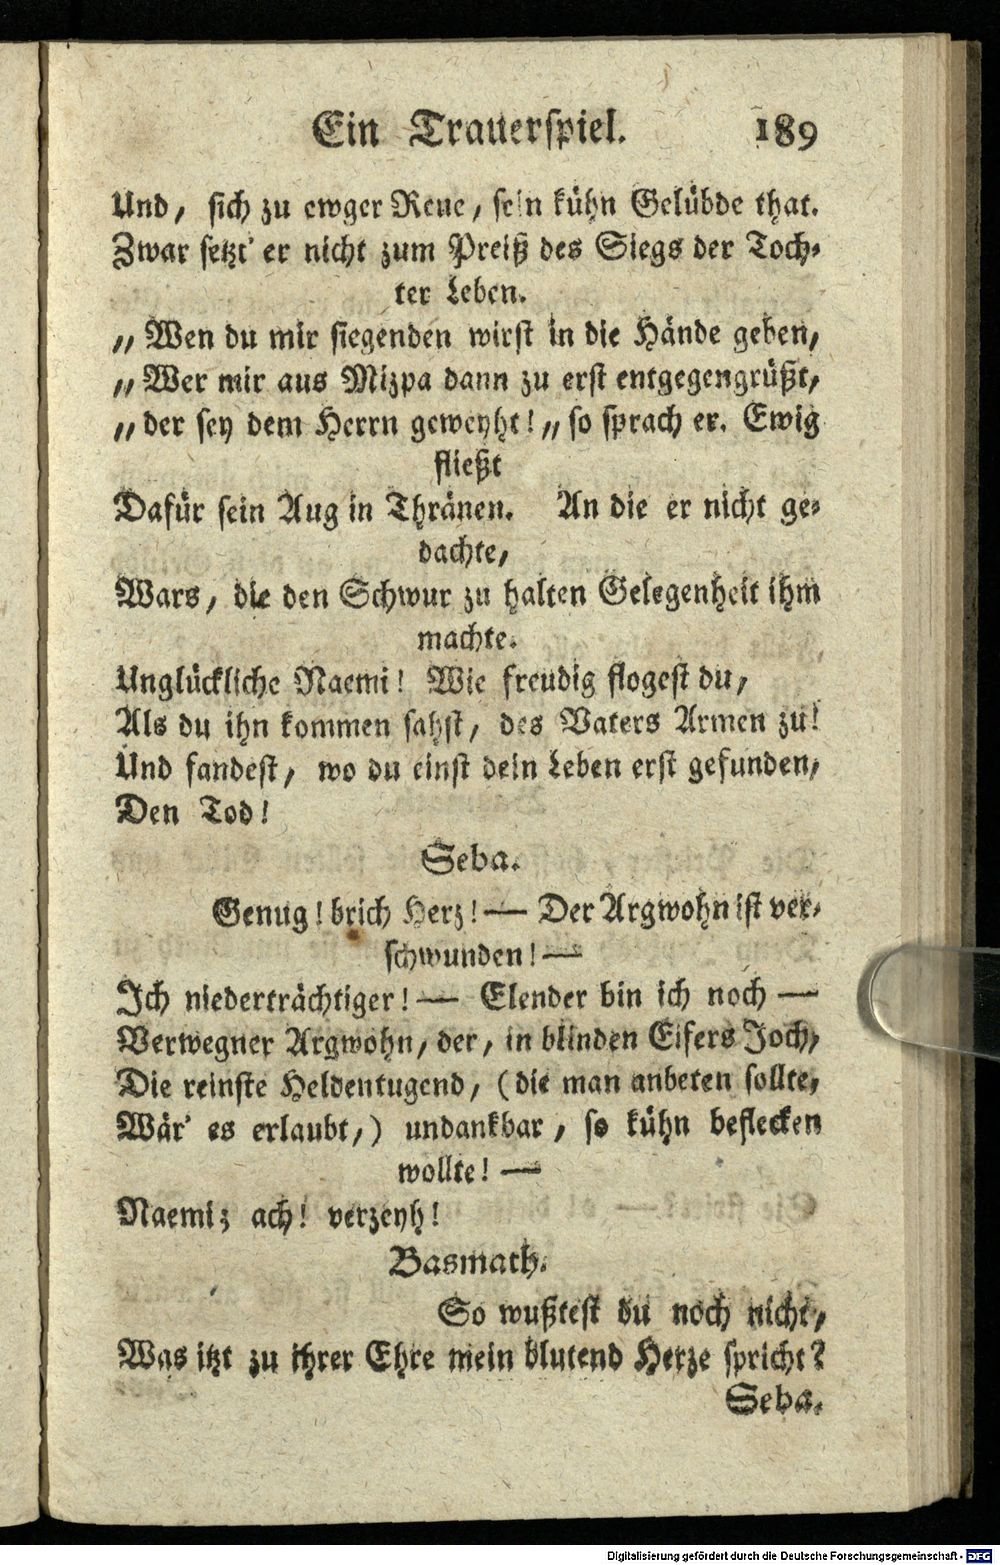 Ein Trauerspiel. 189
Und, sich zu ewger Reue, sein kühn Gelübde that.
Zwar setzt' er nicht zum Preiß des Siegs der Toch-
ter Leben.
„Wen du mir siegenden wirst in die Hände geben,
„Wer mir aus Mizpa dann zu erst entgegengrüßt,
„der sey dem Herrn geweyht!„ so sprach er. Ewig
fließt
Dafür sein Aug in Thränen. An die er nicht ge-
dachte,
Wars, die den Schwur zu halten Gelegenheit ihm
machte.
Unglückliche Naemi! Wie freudig flogest du,
Als du ihn kommen sahst, des Vaters Armen zu!
Und fandest, wo du einst dein Leben erst gefunden,
Den Tod!
Seba.
Genug! brich Herz! — Der Argwohn ist ver-
schwunden! —
Ich niederträchtiger! — Elender bin ich noch —
Verwegner Argwohn, der, in blinden Eifers Joch,
Die reinste Heldentugend, (die man anbeten sollte,
Wär' es erlaubt,) undankbar, so kühn beflecken
wollte! —
Naemi; ach! verzeyh!
Basmath.
So wußtest du noch nicht,
Was itzt zu ihrer Ehre mein blutend Herze spricht?
Seba.
Digitalisierung gefördert durch die Deutsche Forschungsgemeinschaft - DFG